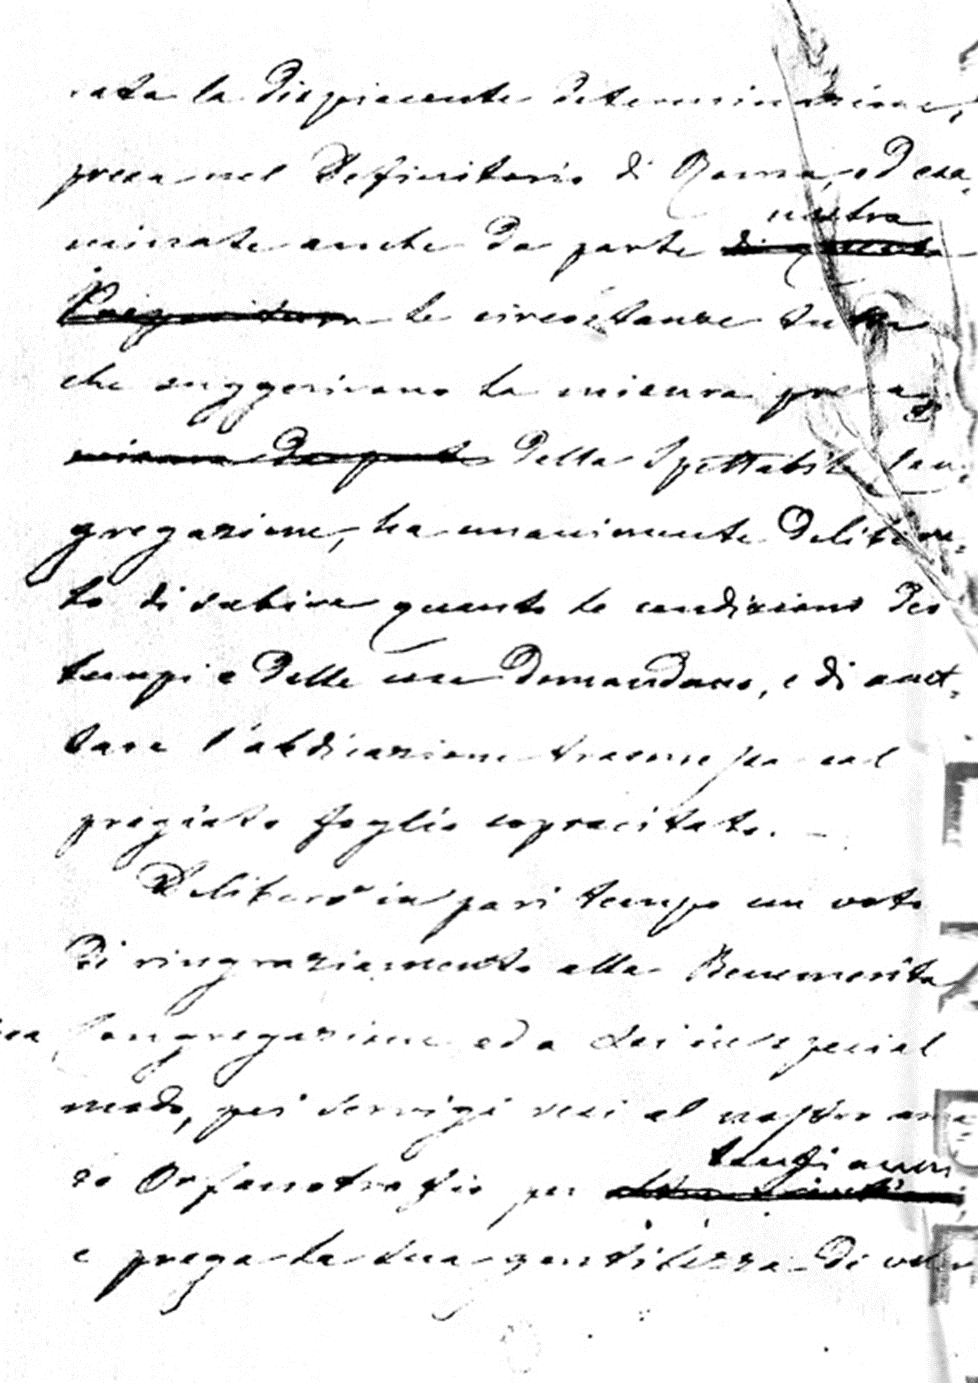 cata la dispiacente determinazione,
presa nel Definitorio di Roma, ed esa-
minate anche da parte nostra
le circostanze tutte
che suggerivano la misura presa
della Spettabile Con-
gregazione, ha unanimente delibera-
to di subire quanto le condizioni dei
tempi e delle cose domandano, e di accet-
tare l'abdicazione trasmessa col
pregiato foglio sopracitato. -
Deliberò in pari tempo un voto
di ringraziamento alla Benemerita
Congregazione ed a Lei in special
modo, pei servigi resi al nostro
Orfanotrofio per tanti anni,
e prega la sua gentilezza di voler